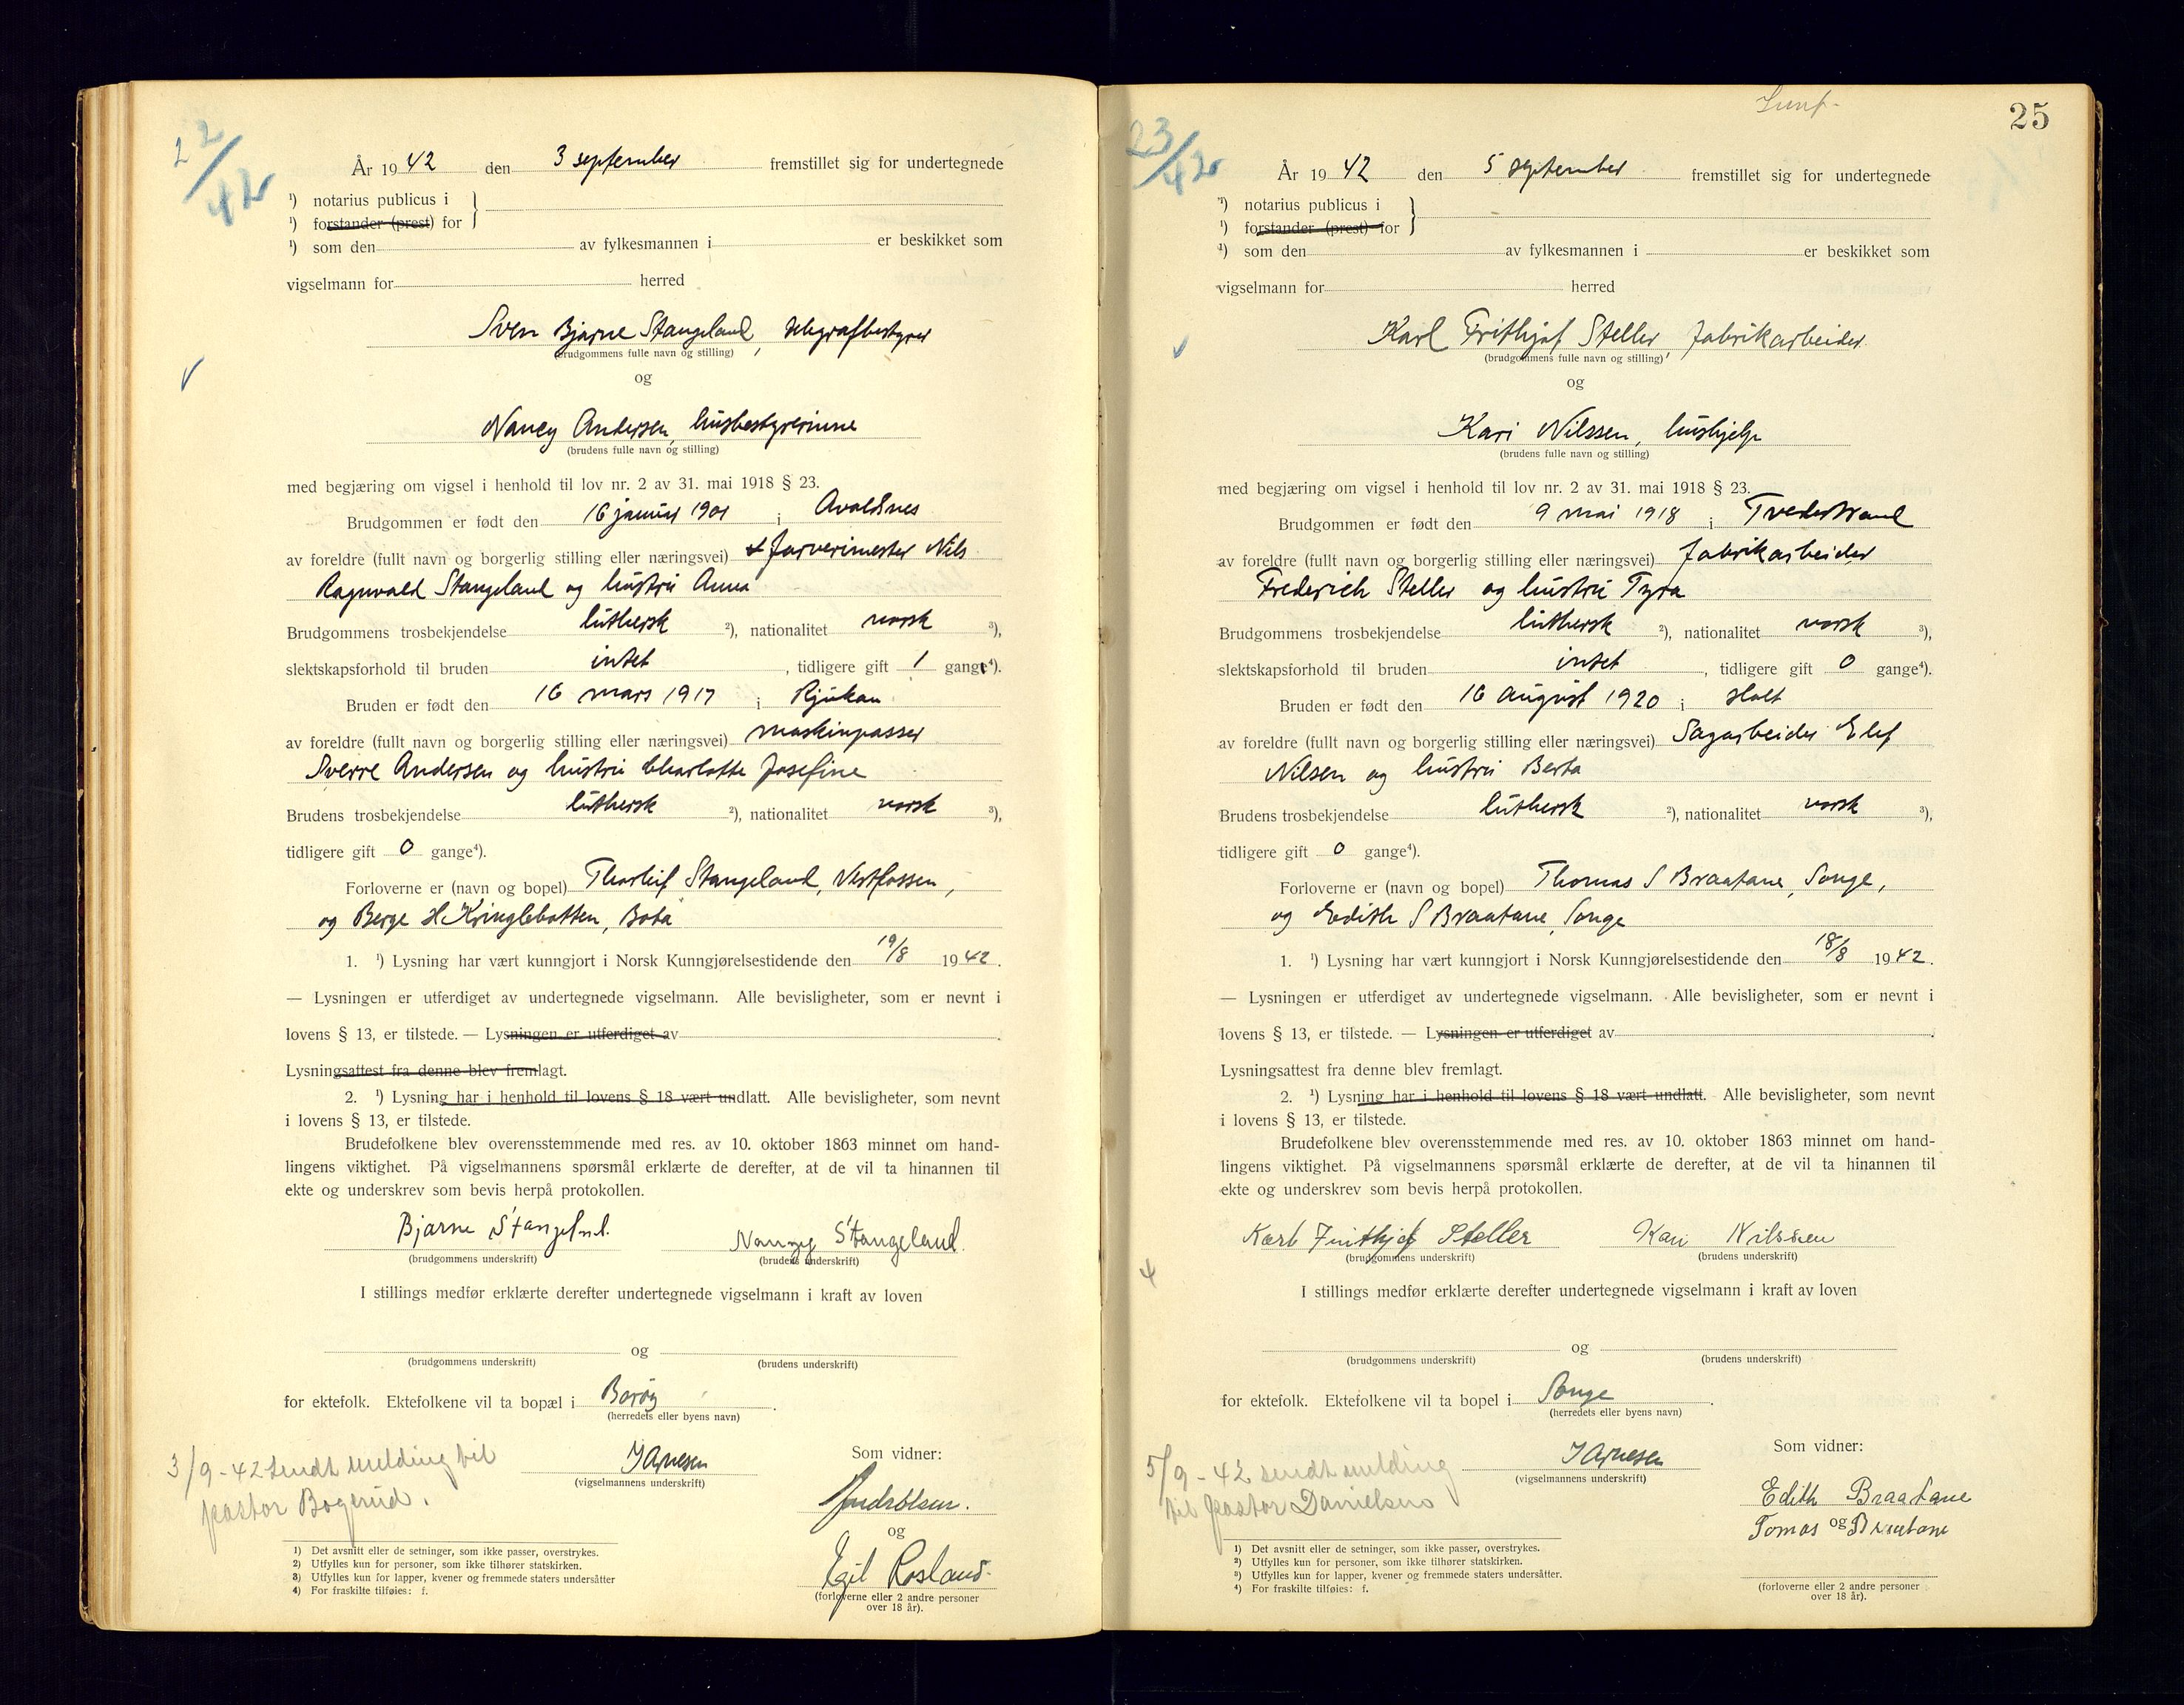 22/42
År 1942 den 3 september fremstillet sig for undertegnede
¹) notarius publicus i
¹) forstander (prest) for
¹) som den av fylkesmannen i er beskikket som
vigselmann for herred
Sven Bjarne Stangeland, telegrafbestyrer
(brudgommens fulle navn og stilling)
og
Nancy Andersen, husbestyrerinne
(brudens fulle navn og stilling)
med begjæring om vigsel i henhold til lov nr. 2 av 31. mai 1918 § 23.
Brudgommen er født den 16 januar 1901 i Avaldsnes
av foreldre (fullt navn og borgerlig stilling eller næringsvei) + farverimester Nils
Ragnvald Stangeland og hustru Anna
Brudgommens trosbekjendelse luthersk ²), nationalitet norsk ³),
slektskapsforhold til bruden intet, tidligere gift 1 gang⁴).
Bruden er født den 16 mars 1917 i Rjukan
av foreldre (fullt navn og borgerlig stilling eller næringsvei) maskinpasser
Sverre Andersen og hustru Charlotte Josefine
Brudens trosbekjendelse luthersk ²), nationalitet norsk ³),
tidligere gift 0 gange⁴).
Forloverne er (navn og bopel) Thorleif Stangeland, Vestfossen,
og Berge H Kringlebotten, Bota
1. ¹) Lysning har vært kunngjort i Norsk Kunngjørelsestidende den 19/8 1942.
— Lysningen er utferdiget av undertegnede vigselmann. Alle bevisligheter, som er nevnt i
lovens § 13, er tilstede. — Lysningen er utferdiget av
Lysningsattest fra denne blev fremlagt.
2. ¹) Lysning har i henhold til lovens § 18 vært undlatt. Alle bevisligheter, som nevnt
i lovens § 13, er tilstede.
Brudefolkene blev overensstemmende med res. av 10. oktober 1863 minnet om hand-
lingens viktighet. På vigselmannens spørsmål erklærte de derefter, at de vil ta hinannen til
ekte og underskrev som bevis herpå protokollen.
Bjarne Stangeland. Nancy Stangeland.
(brudgommens underskrift) (brudens underskrift)
I stillings medfør erklærte derefter undertegnede vigselmann i kraft av loven
og
(brudgommens underskrift) (brudens underskrift)
for ektefolk. Ektefolkene vil ta bopæl i Borøy.
(herredets eller byens navn)
3/9-42 sendt melding til
pastor Bogerud.
(vigselmannens underskrift)
Som vidner:
og
Egil Rosland.
(forloverne eller 2 andre personer
over 18 år).
1) Det avsnitt eller de setninger, som ikke passer, overstrykes.
2) Utfylles kun for personer, som ikke tilhører statskirken.
3) Utfylles kun for lapper, kvener og fremmede staters undersåtter
4) For fraskilte tilføies: f.
25
23/42
År 1942 den 5 september fremstillet sig for undertegnede
¹) notarius publicus i
¹) forstander (prest) for
¹) som den av fylkesmannen i er beskikket som
vigselmann for herred
Karl Frithjof Steller, fabrikarbeider
(brudgommens fulle navn og stilling)
og
Kari Nilssen, hushjelp
(brudens fulle navn og stilling)
med begjæring om vigsel i henhold til lov nr. 2 av 31. mai 1918 § 23.
Brudgommen er født den 9 mai 1918 i Tvedestrand
av foreldre (fullt navn og borgerlig stilling eller næringsvei) fabrikarbeider
Frederich Steller og hustru Tyra
Brudgommens trosbekjendelse luthersk ²), nationalitet norsk ³),
slektskapsforhold til bruden intet, tidligere gift 0 gange⁴).
Bruden er født den 16 august 1920 i Holt
av foreldre (fullt navn og borgerlig stilling eller næringsvei) Sagarbeider Elef
Nilsen og hustru Berta
Brudens trosbekjendelse luthersk ²), nationalitet norsk ³),
tidligere gift 0 gange⁴).
Forloverne er (navn og bopel) Thomas S Braatane, Songe,
og Edith S Braatane, Songe
1. ¹) Lysning har vært kunngjort i Norsk Kunngjørelsestidende den 18/8 1942.
— Lysningen er utferdiget av undertegnede vigselmann. Alle bevisligheter, som er nevnt i
lovens § 13, er tilstede. — Lysningen er utferdiget av
Lysningsattest fra denne blev fremlagt.
2. ¹) Lysning har i henhold til lovens § 18 vært undlatt. Alle bevisligheter, som nevnt
i lovens § 13, er tilstede.
Brudefolkene blev overensstemmende med res. av 10. oktober 1863 minnet om hand-
lingens viktighet. På vigselmannens spørsmål erklærte de derefter, at de vil ta hinannen til
ekte og underskrev som bevis herpå protokollen.
Karl Frithjof Steller Kari Nilssen
(brudgommens underskrift) (brudens underskrift)
I stillings medfør erklærte derefter undertegnede vigselmann i kraft av loven
og
(brudgommens underskrift) (brudens underskrift)
for ektefolk. Ektefolkene vil ta bopel i Songe.
(herredets eller byens navn)
5/9-42 sendt melding
til pastor Danielsen
(vigselmannens underskrift)
Som vidner:
Edith Braatane
Tomas og Braatane
(forloverne eller 2 andre personer
over 18 år).
1) Det avsnitt eller de setninger, som ikke passer, overstrykes.
2) Utfylles kun for personer, som ikke tilhører statskirken.
3) Utfylles kun for lapper, kvener og fremmede staters undersåtter.
4) For fraskilte tilføies: f.